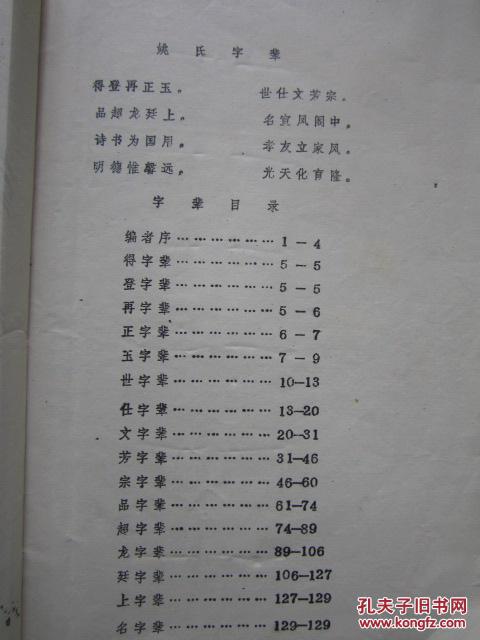 姚氏字辈
得登再正玉。 世仕文芳宗。
品超龙廷上。 名宣凤阁中。
诗书为国用。 孝友立家风。
明德惟馨远。 光天化育隆。
字辈目录
编者序……………… 1－4
得字辈……………… 5－5
登字辈……………… 5－5
再字辈……………… 5－6
正字辈……………… 6－7
玉字辈……………… 7－9
世字辈……………… 10—13
仕字辈……………… 13—20
文字辈……………… 20—31
芳字辈……………… 31—46
宗字辈……………… 46—60
品字辈……………… 61—74
超字辈……………… 74—89
龙字辈……………… 89—106
廷字辈……………… 106—127
上字辈……………… 127—129
名字辈……………… 129—129
孔夫子旧书网